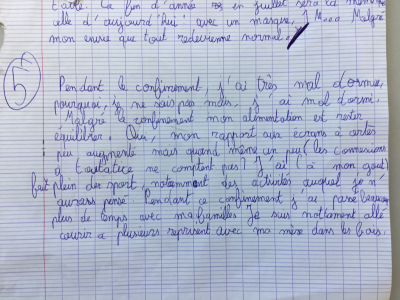 t'arté. La fin d'année en juillet sera la même
celle d'aujourd'hui avec un masque, 1 M... Malgré
mon envie que tout redevienne normal.
5
Pendant le confinement, j'ai très mal dormie,
pourquoi, je ne sais pas mais, j'ai mal dormi.
Malgré le confinement mon alimentation est rester
équilibrer. Oui, mon rapport aux écrans à certes
peu augmenté mais quand même un peu (les connexions
à toutatice ne comptent pas)! J'ai (à mon gout)
fait plein de sport, notamment des activités auquel je n'
aurais pensé. Pendant ce confinement j'ai passé beaucoup
plus de temps avec ma familles. Je suis notament allé
courir a plusieurs reprisent avec ma mère dans les bois.